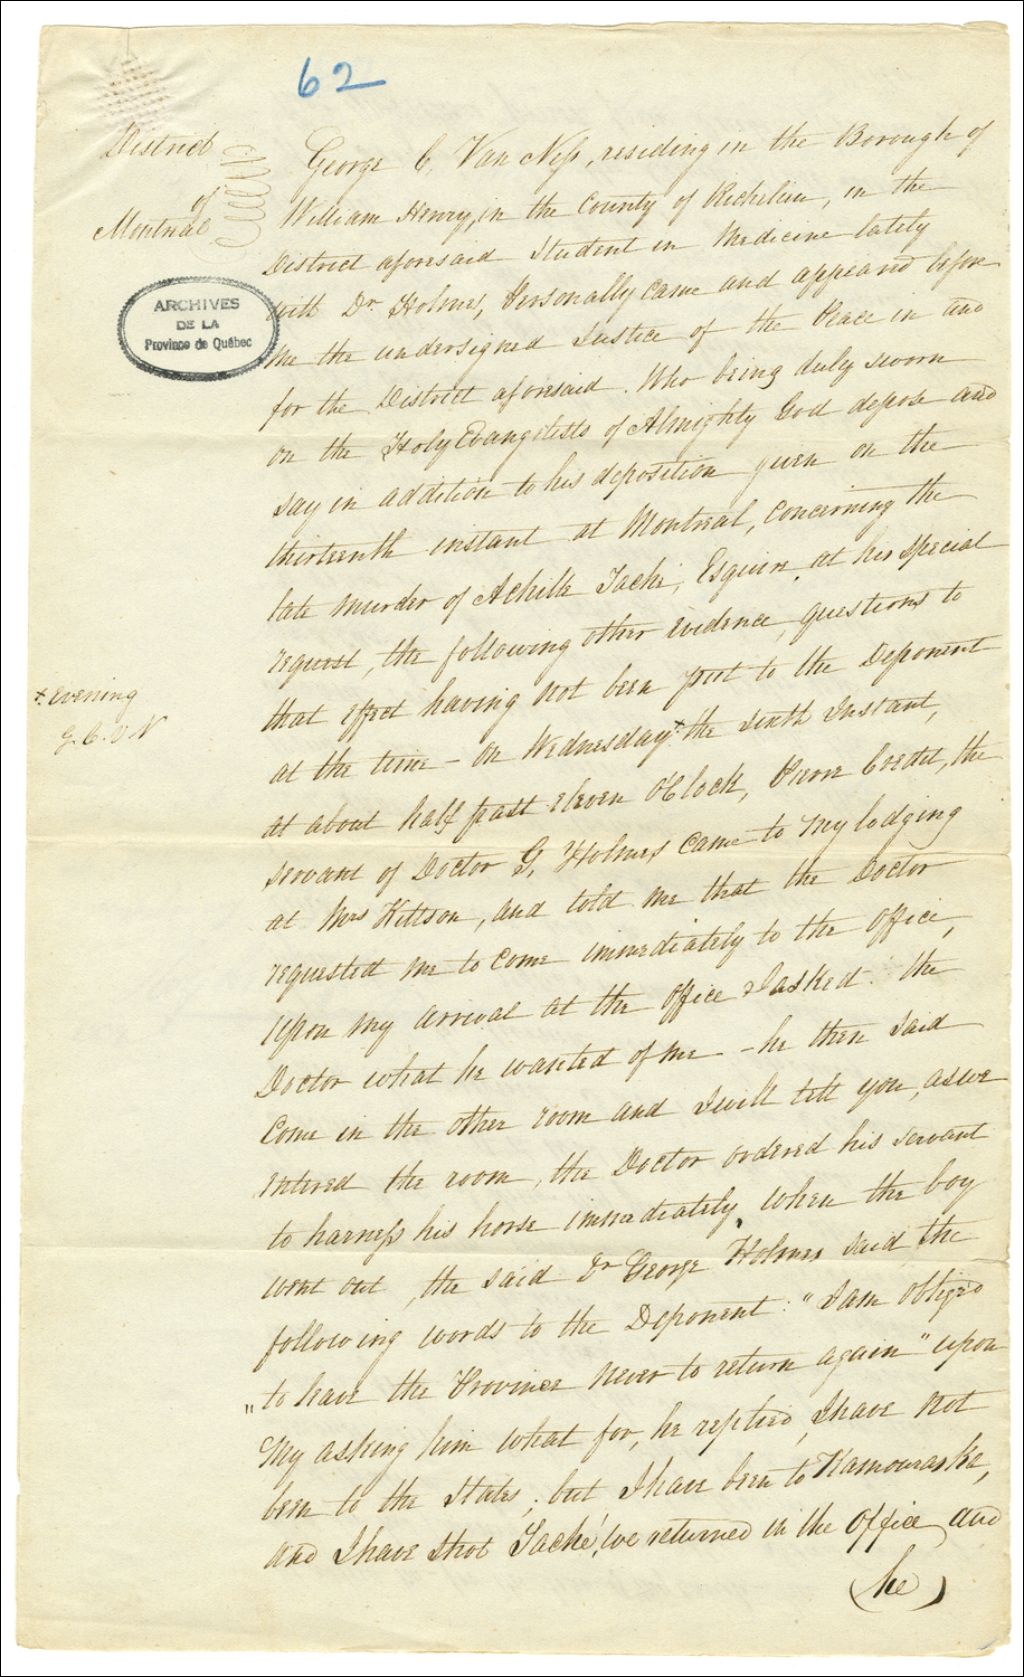 62
District
of
Montreal
ARCHIVES
DE LA
Province de Québec
George C. Van Ness, residing in the Borough of
William Henry, in the County of Richelieu, in the
District aforesaid Student in Medicine lately
with Dr. Holmes, Personally came and appeared before
me the undersigned Justice of the Peace in and
for the District aforesaid. Who being duly sworn
on the Holy Evangelists of Almighty God depose and
say in addition to his deposition given on the
thirteenth instant at Montreal, concerning the
late Murder of Achille Taché, Esquire, at his special
request, the following other evidence, questions to
that effect having not been put to the Deponent
at the time – On Wednesday + the sixth Instant,
+ Evening
G. C. V N
at about half past eleven O'Clock, Pierre the
servant of Doctor G. Holmes came to my lodging
at Mrs Kittson, and told me that the Doctor
requested me to come immediately to the office,
Upon my arrival at the office I asked the
Doctor what he wanted of me – he then said
Come in the other room and I will tell you, as we
entered the room, the Doctor ordered his servant
to harness his horse immediately, when the boy
went out, the said Dr George Holmes said the
following words to the Deponent: "I am obliged
"to leave the Province never to return again" upon
My asking him what for, he replied, I have not
been to the States; but I have been to Kamouraska,
and I have shot Taché, we returned in the office and
(he)